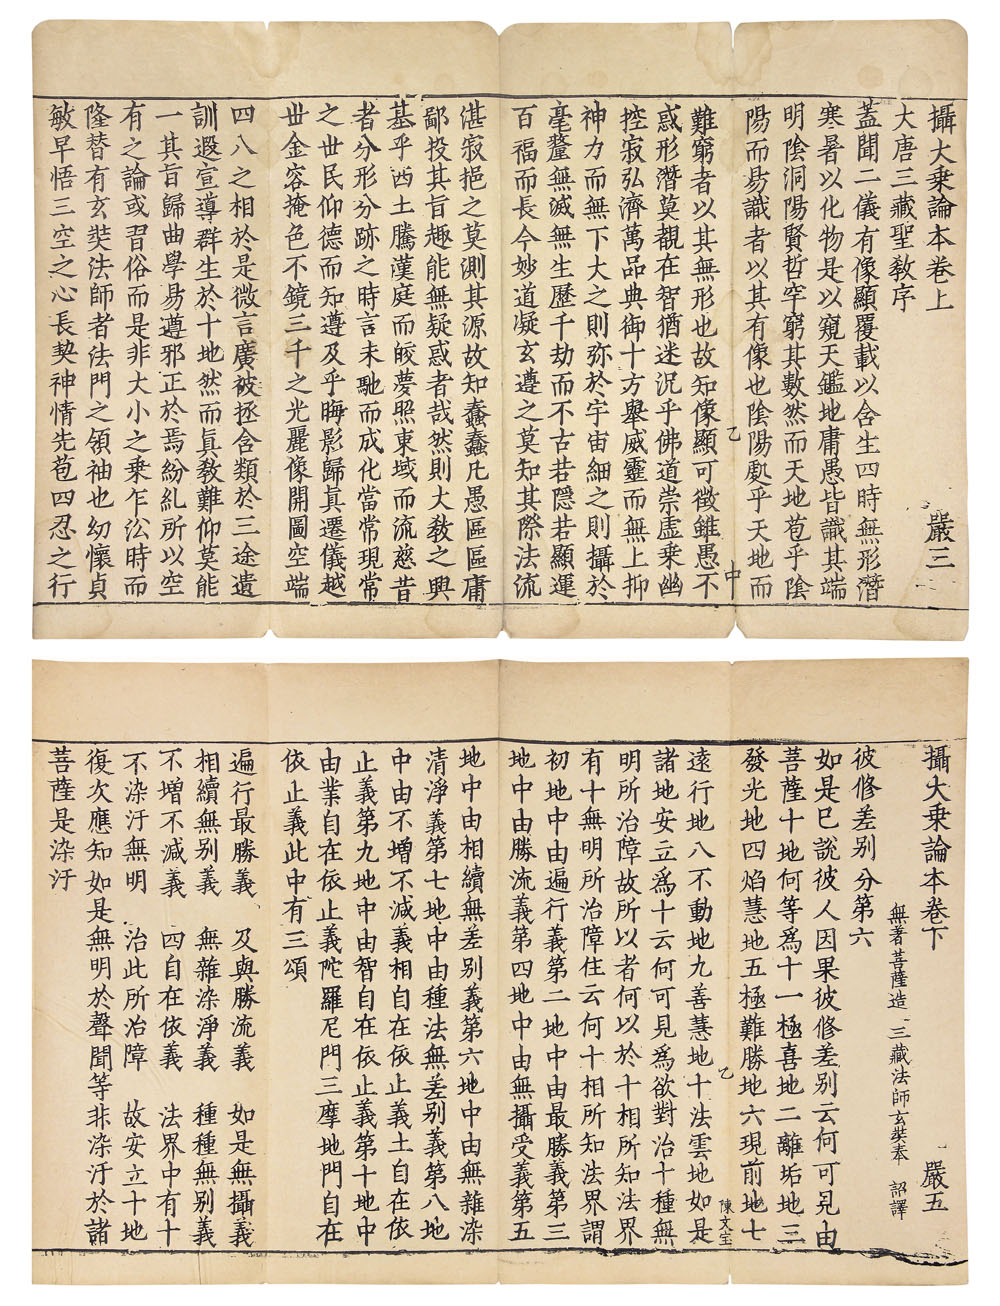 攝大乗論本卷上
嚴三
大唐三藏聖教序
蓋聞二儀有像顯覆載以含生四時無形潛
寒暑以化物是以窺天鑑地庸愚皆識其端
明陰洞陽賢哲罕窮其數然而天地苞乎陰
陽而易識者以其有像也陰陽處乎天地而
乙
中
難窮者以其無形也故知像顯可徵雖愚不
惑形潛莫覩在智猶迷況乎佛道崇虛乗幽
控寂弘濟萬品典御十方舉威靈而無上抑
神力而無下大之則弥於宇宙細之則攝於
毫釐無滅無生歷千劫而不古若隱若顯運
百福而長今妙道凝玄遵之莫知其際法流
湛寂挹之莫測其源故知蠢蠢凡愚區區庸
鄙投其旨趣能無疑惑者哉然則大教之興
基乎西土騰漢庭而皎夢照東域而流慈昔
者分形分跡之時言未馳而成化當常現常
之世民仰德而知遵及乎晦影歸真遷儀越
世金容掩色不鏡三千之光麗像開圖空端
四八之相於是微言廣被拯含類於三途遺
訓遐宣導群生於十地然而真教難仰莫能
一其旨歸曲學易遵邪正於焉紛糺所以空
有之論或習俗而是非大小之乗乍訟時而
隆替有玄奘法師者法門之領袖也幼懷貞
敏早悟三空之心長契神情先苞四忍之行
攝大乗論本卷下
嚴五
無著菩薩造 三藏法師玄奘奉 詔譯
彼修差別分第六
如是已說彼入因果彼修差別云何可見由
菩薩十地何等為十一極喜地二離垢地三
發光地四焰慧地五極難勝地六現前地七
乙
陳文宝
遠行地八不動地九善慧地十法雲地如是
諸地安立為十云何可見為欲對治十種無
明所治障故所以者何以於十相所知法界
有十無明所治障住云何十相所知法界謂
初地中由遍行義第二地中由最勝義第三
地中由勝流義第四地中由無攝受義第五
地中由相續無差別義第六地中由無雜染
清淨義第七地中由種種法無差別義第八地
中由不增不減義相自在依止義土自在依
止義第九地中由智自在依止義第十地中
由業自在依止義陀羅尼門三摩地門自在
依止義此中有三頌
遍行最勝義 及與勝流義 如是無攝義
相續無別義 無雜染淨義 種種無別義
不增不減義 四自在依義 法界中有十
不染汙無明 治此所治障 故安立十地
復次應知如是無明於聲聞等非染汙於諸
菩薩是染汙